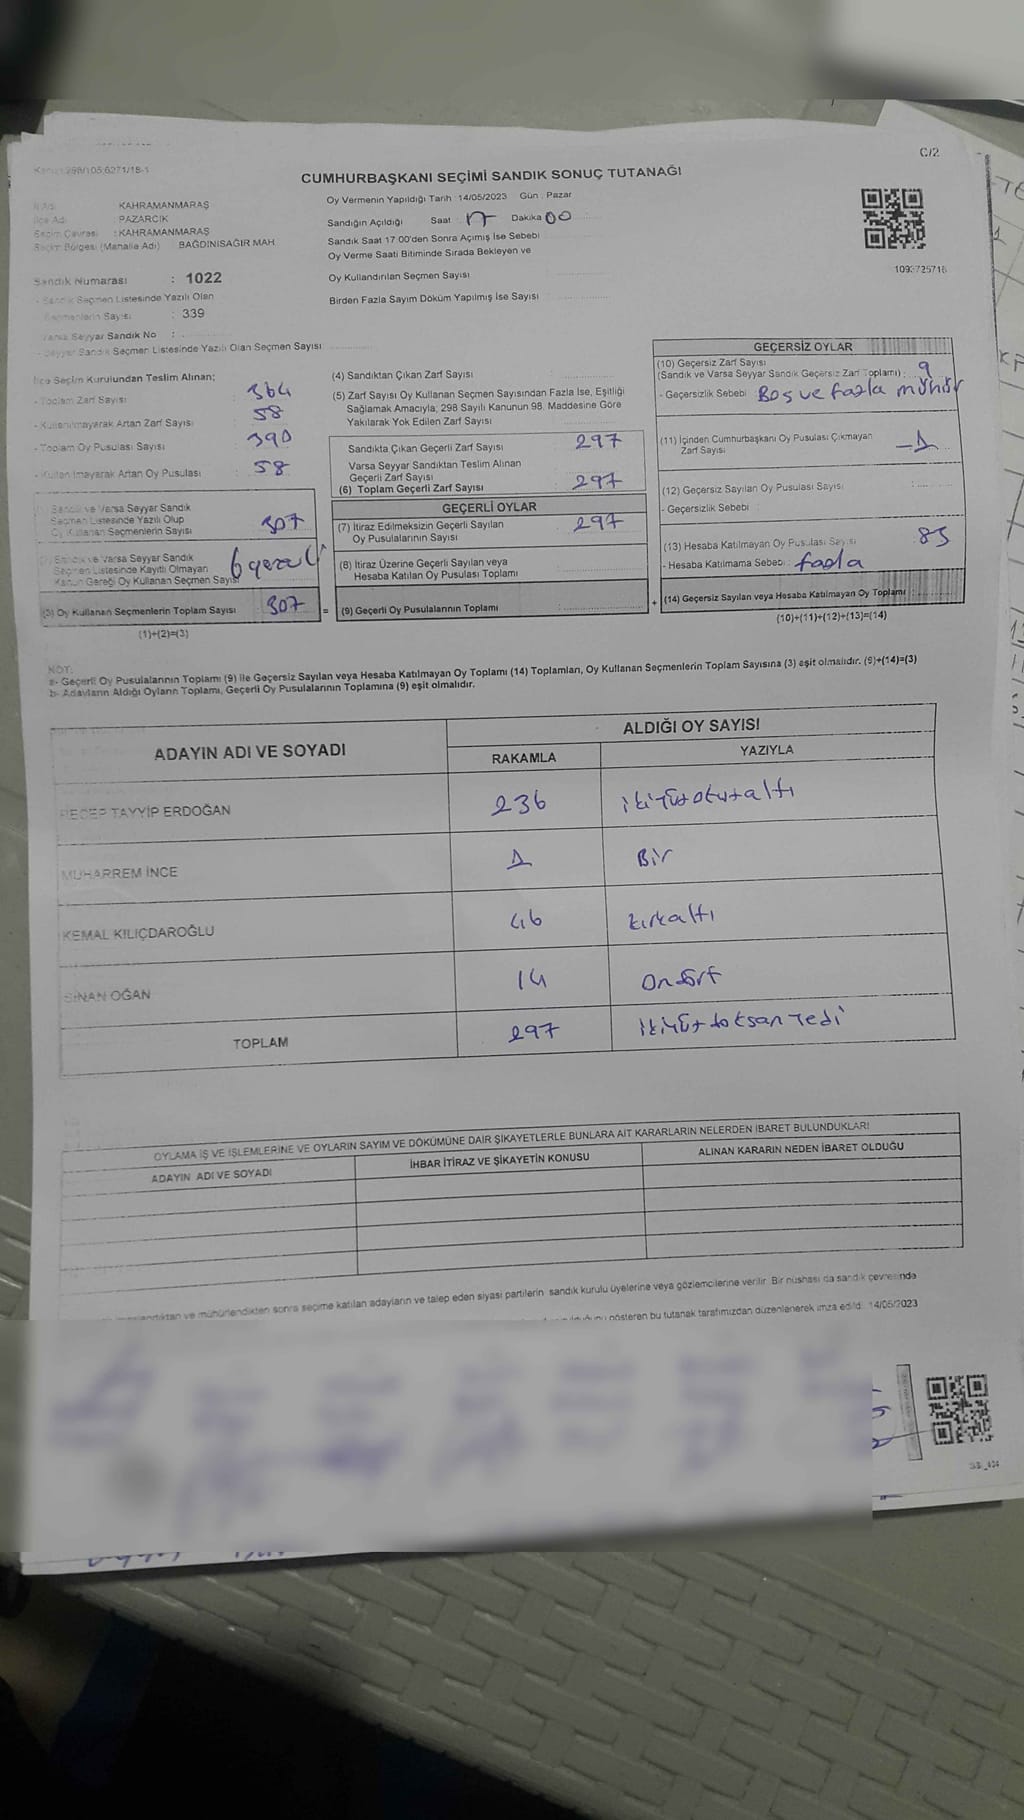 C/2
CUMHURBAŞKANI SEÇİMİ SANDIK SONUÇ TUTANAĞI
İl Adı : KAHRAMANMARAŞ
İlçe Adı : PAZARCIK
Seçim Çevresi : KAHRAMANMARAŞ
Seçim Bölgesi (Mahalle Adı) BAĞDINISAĞIR MAH.
Sandık Numarası : 1022
- Sandık Seçmen Listesinde Yazılı Olan
Seçmenlerin Sayısı : 339
Varsa Seyyar Sandık No :
- Seyyar Sandık Seçmen Listesinde Yazılı Olan Seçmen Sayısı
Oy Vermenin Yapıldığı Tarih :14/05/2023 Gün : Pazar
Sandığın Açıldığı Saat : 17 Dakika 00
Sandık Saat 17:00'den Sonra Açımış İse Sebebi
Oy Verme Saati Bitiminde Sırada Bekleyen ve
Oy Kullandırılan Seçmen Sayısı
Birden Fazla Sayım Döküm Yapılmış İse Sayısı
1093725716
İlçe Seçim Kurulundan Teslim Alınan;
- Toplam Zarf Sayısı : 364
- Kullanılmayarak Artan Zarf Sayısı : 58
- Toplam Oy Pusulası Sayısı : 390
- Kullanılmayarak Artan Oy Pusulası : 58
Sandık ve Varsa Seyyar Sandık
Seçmen Listesinde Yazılı Olup
Oy Kullanan Seçmenlerin Sayısı : 307
Sandık ve Varsa Seyyar Sandık
Seçmen Listesinde Kayıtlı Olmayan
Kanun Gereği Oy Kullanan Seçmen Sayısı 6
(3) Oy Kullanan Seçmenlerin Toplam Sayısı 307 =
(1)+(2)=(3)
(4) Sandıktan Çıkan Zarf Sayısı
(5) Zarf Sayısı Oy Kullanan Seçmen Sayısından Fazla İse, Eşitliği
Sağlamak Amacıyla; 298 Sayılı Kanunun 98. Maddesine Göre
Yakılarak Yok Edilen Zarf Sayısı
Sandıkta Çıkan Geçerli Zarf Sayısı : 297
Varsa Seyyar Sandıktan Teslim Alınan
Geçerli Zarf Sayısı
(6) Toplam Geçerli Zarf Sayısı : 297
GEÇERLİ OYLAR
(7) İtiraz Edilmeksizin Geçerli Sayılan
Oy Pusulalarının Sayısı : 297
(8) İtiraz Üzerine Geçerli Sayılan veya
Hesaba Katılan Oy Pusulası Toplamı
(9) Geçerli Oy Pusulalarının Toplamı +
GEÇERSİZ OYLAR
(10) Geçersiz Zarf Sayısı
(Sandık ve Varsa Seyyar Sandık Geçersiz Zarf Toplamı) : 9
- Geçersizlik Sebebi : Boş ve fazla mühür
(11) İçinden Cumhurbaşkanı Oy Pusulası Çıkmayan
Zarf Sayısı -1
(12) Geçersiz Sayılan Oy Pusulası Sayısı
- Geçersizlik Sebebi :
(13) Hesaba Katılmayan Oy Pusulası Sayısı : 83
- Hesaba Katılmama Sebebi : fazla
(14) Geçersiz Sayılan veya Hesaba Katılmayan Oy Toplamı :
(10)+(11)+(12)+(13)=(14)
NOT:
a- Geçerli Oy Pusulalarının Toplamı (9) ile Geçersiz Sayılan veya Hesaba Katılmayan Oy Toplamı (14) Toplamları, Oy Kullanan Seçmenlerin Toplam Sayısına (3) eşit olmalıdır. (9)+(14)=(3)
b- Adayların Aldığı Oyların Toplamı, Geçerli Oy Pusulalarının Toplamına (9) eşit olmalıdır.
ADAYIN ADI VE SOYADI ALDIĞI OY SAYISI
RAKAMLA YAZIYLA
RECEP TAYYİP ERDOĞAN 236 ikiyüzotuzaltı
MUHARREM İNCE 1 Bir
KEMAL KILIÇDAROĞLU 46 kırkaltı
SİNAN OĞAN 14 Ondört
TOPLAM 297 ikiyüz doksan yedi
OYLAMA İŞ VE İŞLEMLERİNE VE OYLARIN SAYIM VE DÖKÜMÜNE DAİR ŞİKAYETLERLE BUNLARA AİT KARARLARIN NELERDEN İBARET BULUNDUKLARI
ADAYIN ADI VE SOYADI İHBAR İTİRAZ VE ŞİKAYETİN KONUSU ALINAN KARARIN NEDEN İBARET OLDUĞU
ve mühürlendikten sonra seçime katılan adayların ve talep eden siyasi partilerin sandık kurulu üyelerine veya gözlemcilerine verilir. Bir nüshası da sandık çevresinde
gösteren bu tutanak tarafımızdan düzenlenerek imza edildi. 14/05/2023